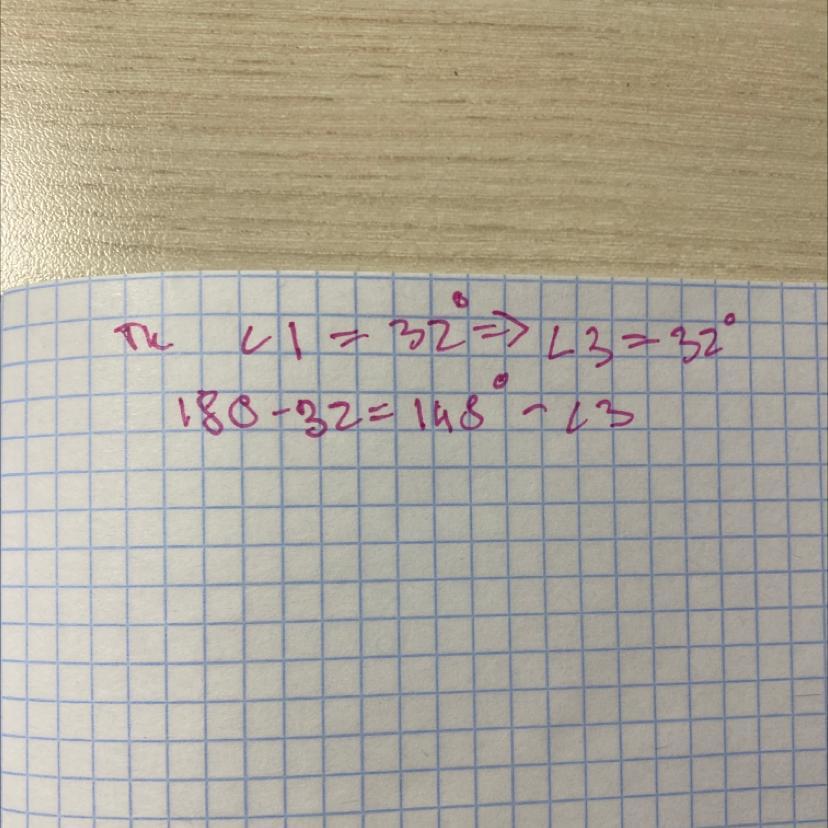 тк ∠1 = 32° => ∠3 = 32°
180 - 32 = 148° - ∠3